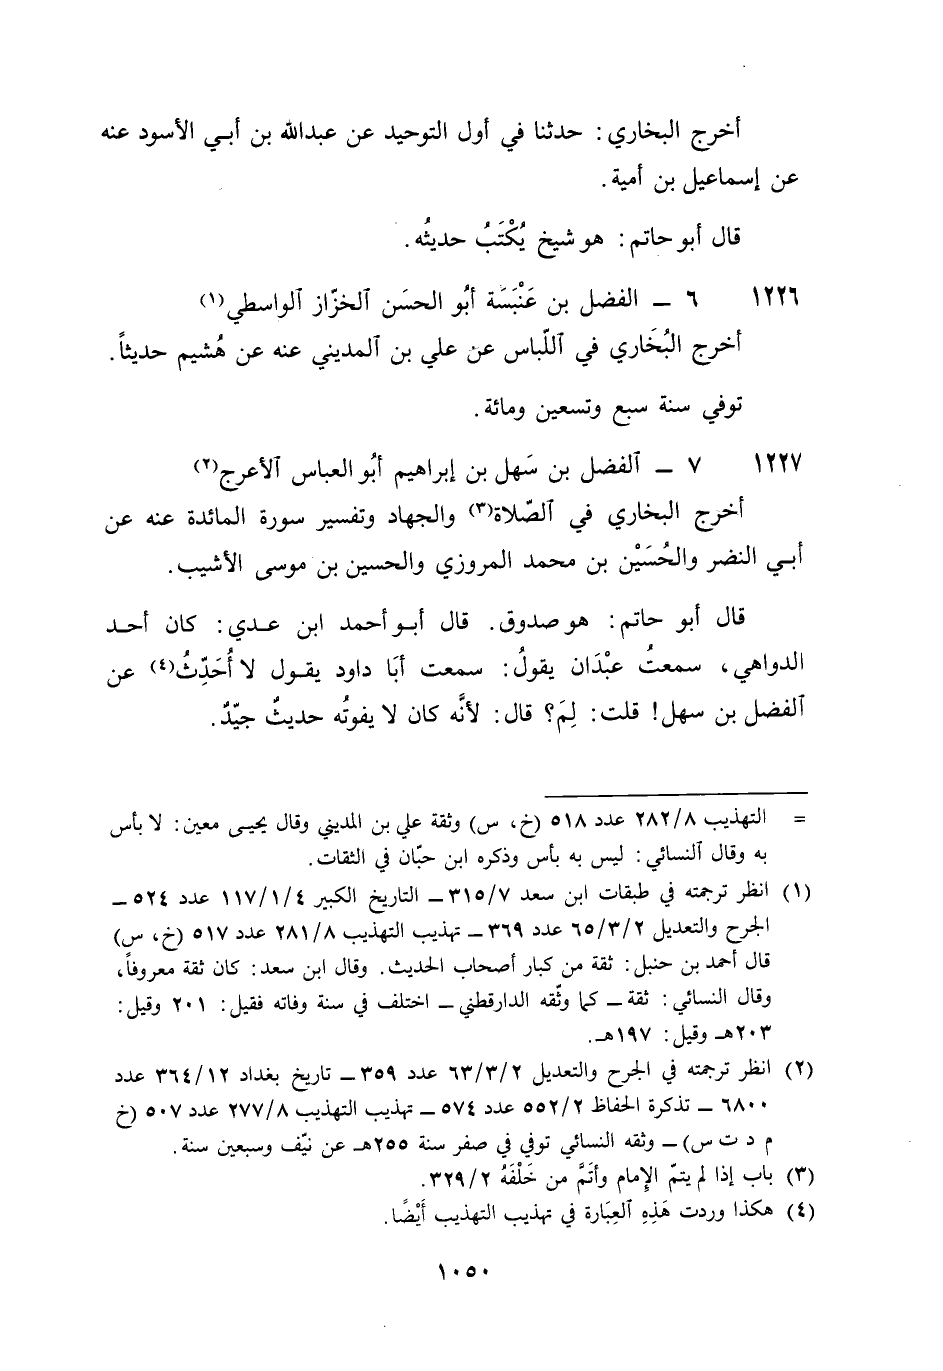 أخرج البخاري: حدثنا في أول التوحيد عن عبدالله بن أبي الأسود عنه
عن إسماعيل بن أمية.
قال أبو حاتم: هو شيخ يُكْتَبُ حديثُه.
١٢٢٦ ٦ ــ الفضل بن عَنْبَسَة أبُو الحسَن ٱلخزّاز ٱلواسطي(١)
أخرج البُخَاري في ٱللّباس عن علي بن ٱلمديني عنه عن هُشيم حديثاً.
توفي سنة سبع وتسعين ومائة.
١٢٢٧ ٧ ــ ٱلفضل بن سَهل بن إبراهيم أبُو العباس ٱلأعرج(٢)
أخرج البخاري في ٱلصّلاة(٣) والجهاد وتفسير سورة المائدة عنه عن
أبي النضر والحُسَيْن بن محمد المروزي والحسين بن موسى الأشيب.
قال أبو حاتم: هو صدوق. قال أبو أحمد ابن عدي: كان أحد
الدواهي، سمعتُ عبْدَان يقولُ: سمعت أبَا داود يقول لا أُحَدِّثُ(٤) عن
ٱلفضل بن سهل! قلت: لِمَ؟ قال: لأنَّه كان لا يفوتُه حديثٌ جيّدٌ.
= التهذيب ٢٨٢/٨ عدد ٥١٨ (خ، س) وثقة علي بن المديني وقال يحيى معين: لا بأس
به وقال ٱلنسائي: ليس به بأس وذكره ابن حبّان في الثقات.
(١) انظر ترجمته في طبقات ابن سعد ٣١٥/٧ ــ التاريخ الكبير ١١٧/١/٤ عدد ٥٢٤ ــ
الجرح والتعديل ٦٥/٣/٢ عدد ٣٦٩ ــ تهذيب التهذيب ٢٨١/٨ عدد ٥١٧ (خ، س)
قال أحمد بن حنبل: ثقة من كبار أصحاب الحديث. وقال ابن سعد: كان ثقة معروفاً،
وقال النسائي: ثقة ــ كما وثّقه الدارقطني ــ اختلف في سنة وفاته فقيل: ٢٠١ وقيل:
٢٠٣هـ وقيل: ١٩٧هـ.
(٢) انظر ترجمته في الجرح والتعديل ٦٣/٣/٢ عدد ٣٥٩ ــ تاريخ بغداد ٣٦٤/١٢ عدد
٦٨٠٠ ــ تذكرة الحفاظ ٥٥٢/٢ عدد ٥٧٤ ــ تهذيب التهذيب ٢٧٧/٨ عدد ٥٠٧ (خ
م د ت س) ــ وثقه النسائي توفي في صفر سنة ٢٥٥هـ عن نيّف وسبعين سنة.
(٣) باب إذا لم يتمّ الإمام وأتَمَّ من خَلْفَهُ ٣٢٩/٢.
(٤) هكذا وردت هَذِهِ ٱلعِبَارة في تهذيب التهذيب أَيْضًا.
١٠٥٠